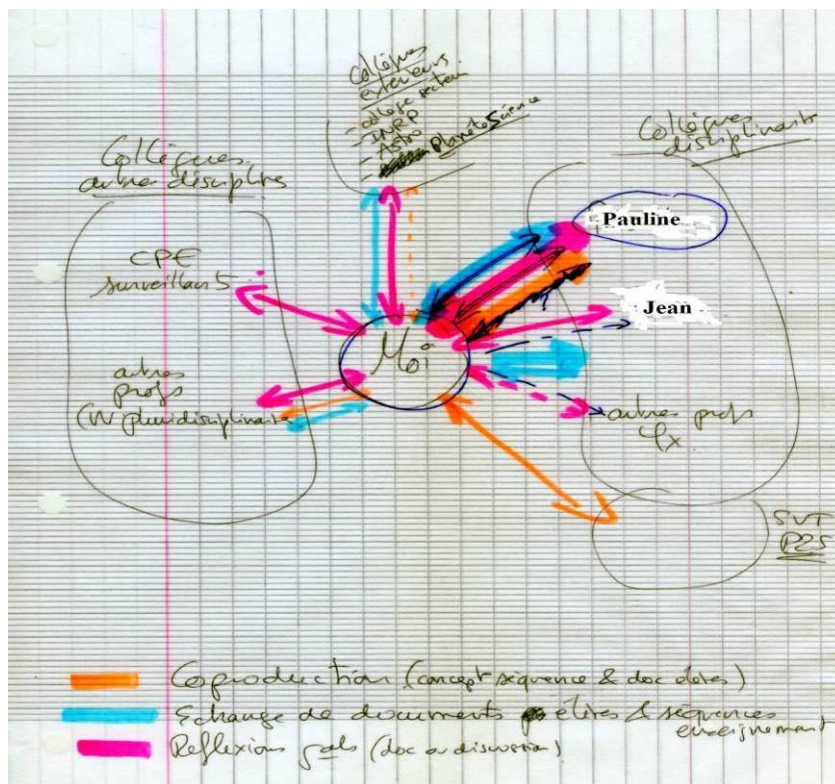 Collègues
extérieurs
- collège secteur
- INRP
- Astro
- Planète Science
Collègues
autres disciplines
CPE
surveillants
autres
profs
(W pluridisciplinaire
Moi
Collègues
disciplinaire
Pauline
Jean
autres profs
φx
SVT
P25
Coproduction (concept séquence & doc élèves)
Echange de documents élèves & séquences
enseignement
Réflexions gals (doc ou discussion)